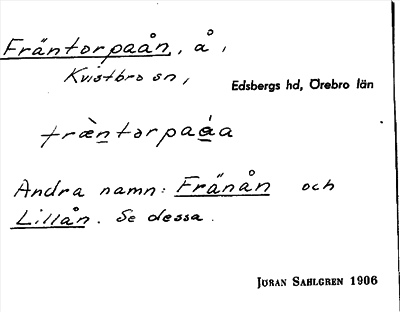 Fräntorpaån, å,
Kvistbro sn,
Edsbergs hd, Örebro län
fræ̀ntorpaáa
Andra namn: Fränån och
Lillån. Se dessa.
JÖRAN SAHLGREN 1906